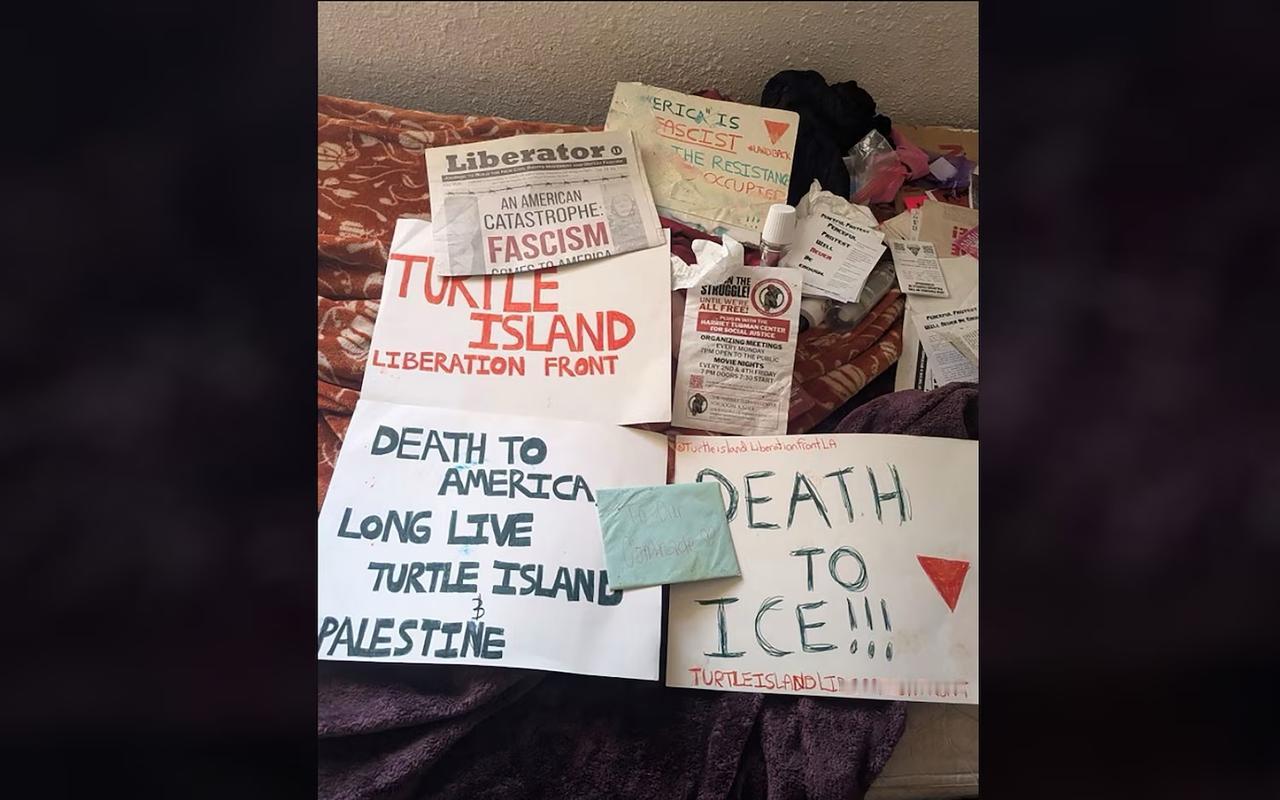 ERICA IS
FASCIST
#LANDBACK
THE RESISTANC
OCCUPIED
!!!
Liberator
AN AMERICAN
CATASTROPHE:
FASCISM
COMES TO AMERICA
TURTLE
ISLAND
LIBERATION FRONT
PEACEFUL PROTEST
WILL NEVER BE
ENOUGH.
PEACEFUL
PROTEST
WILL
NEVER
BE
ENOUGH.
IN THE
STRUGGLE!
UNTIL WE'RE
ALL FREE!
PLUG IN WITH THE
HARRIET TUBMAN CENTER
FOR SOCIAL JUSTICE
ORGANIZING MEETINGS
EVERY MONDAY
7PM OPEN TO THE PUBLIC
MOVIE NIGHTS
EVERY 2ND & 4TH FRIDAY
7 PM DOORS 7:30 START
PEACEFUL PROTEST
WILL NEVER BE ENOUGH
DEATH TO
AMERICA
LONG LIVE
TURTLE ISLAND
&
PALESTINE
To Our
Comrade
@TurtleislandLiberationfrontLA
DEATH
TO
ICE!!!
TURTLEISLANDLI